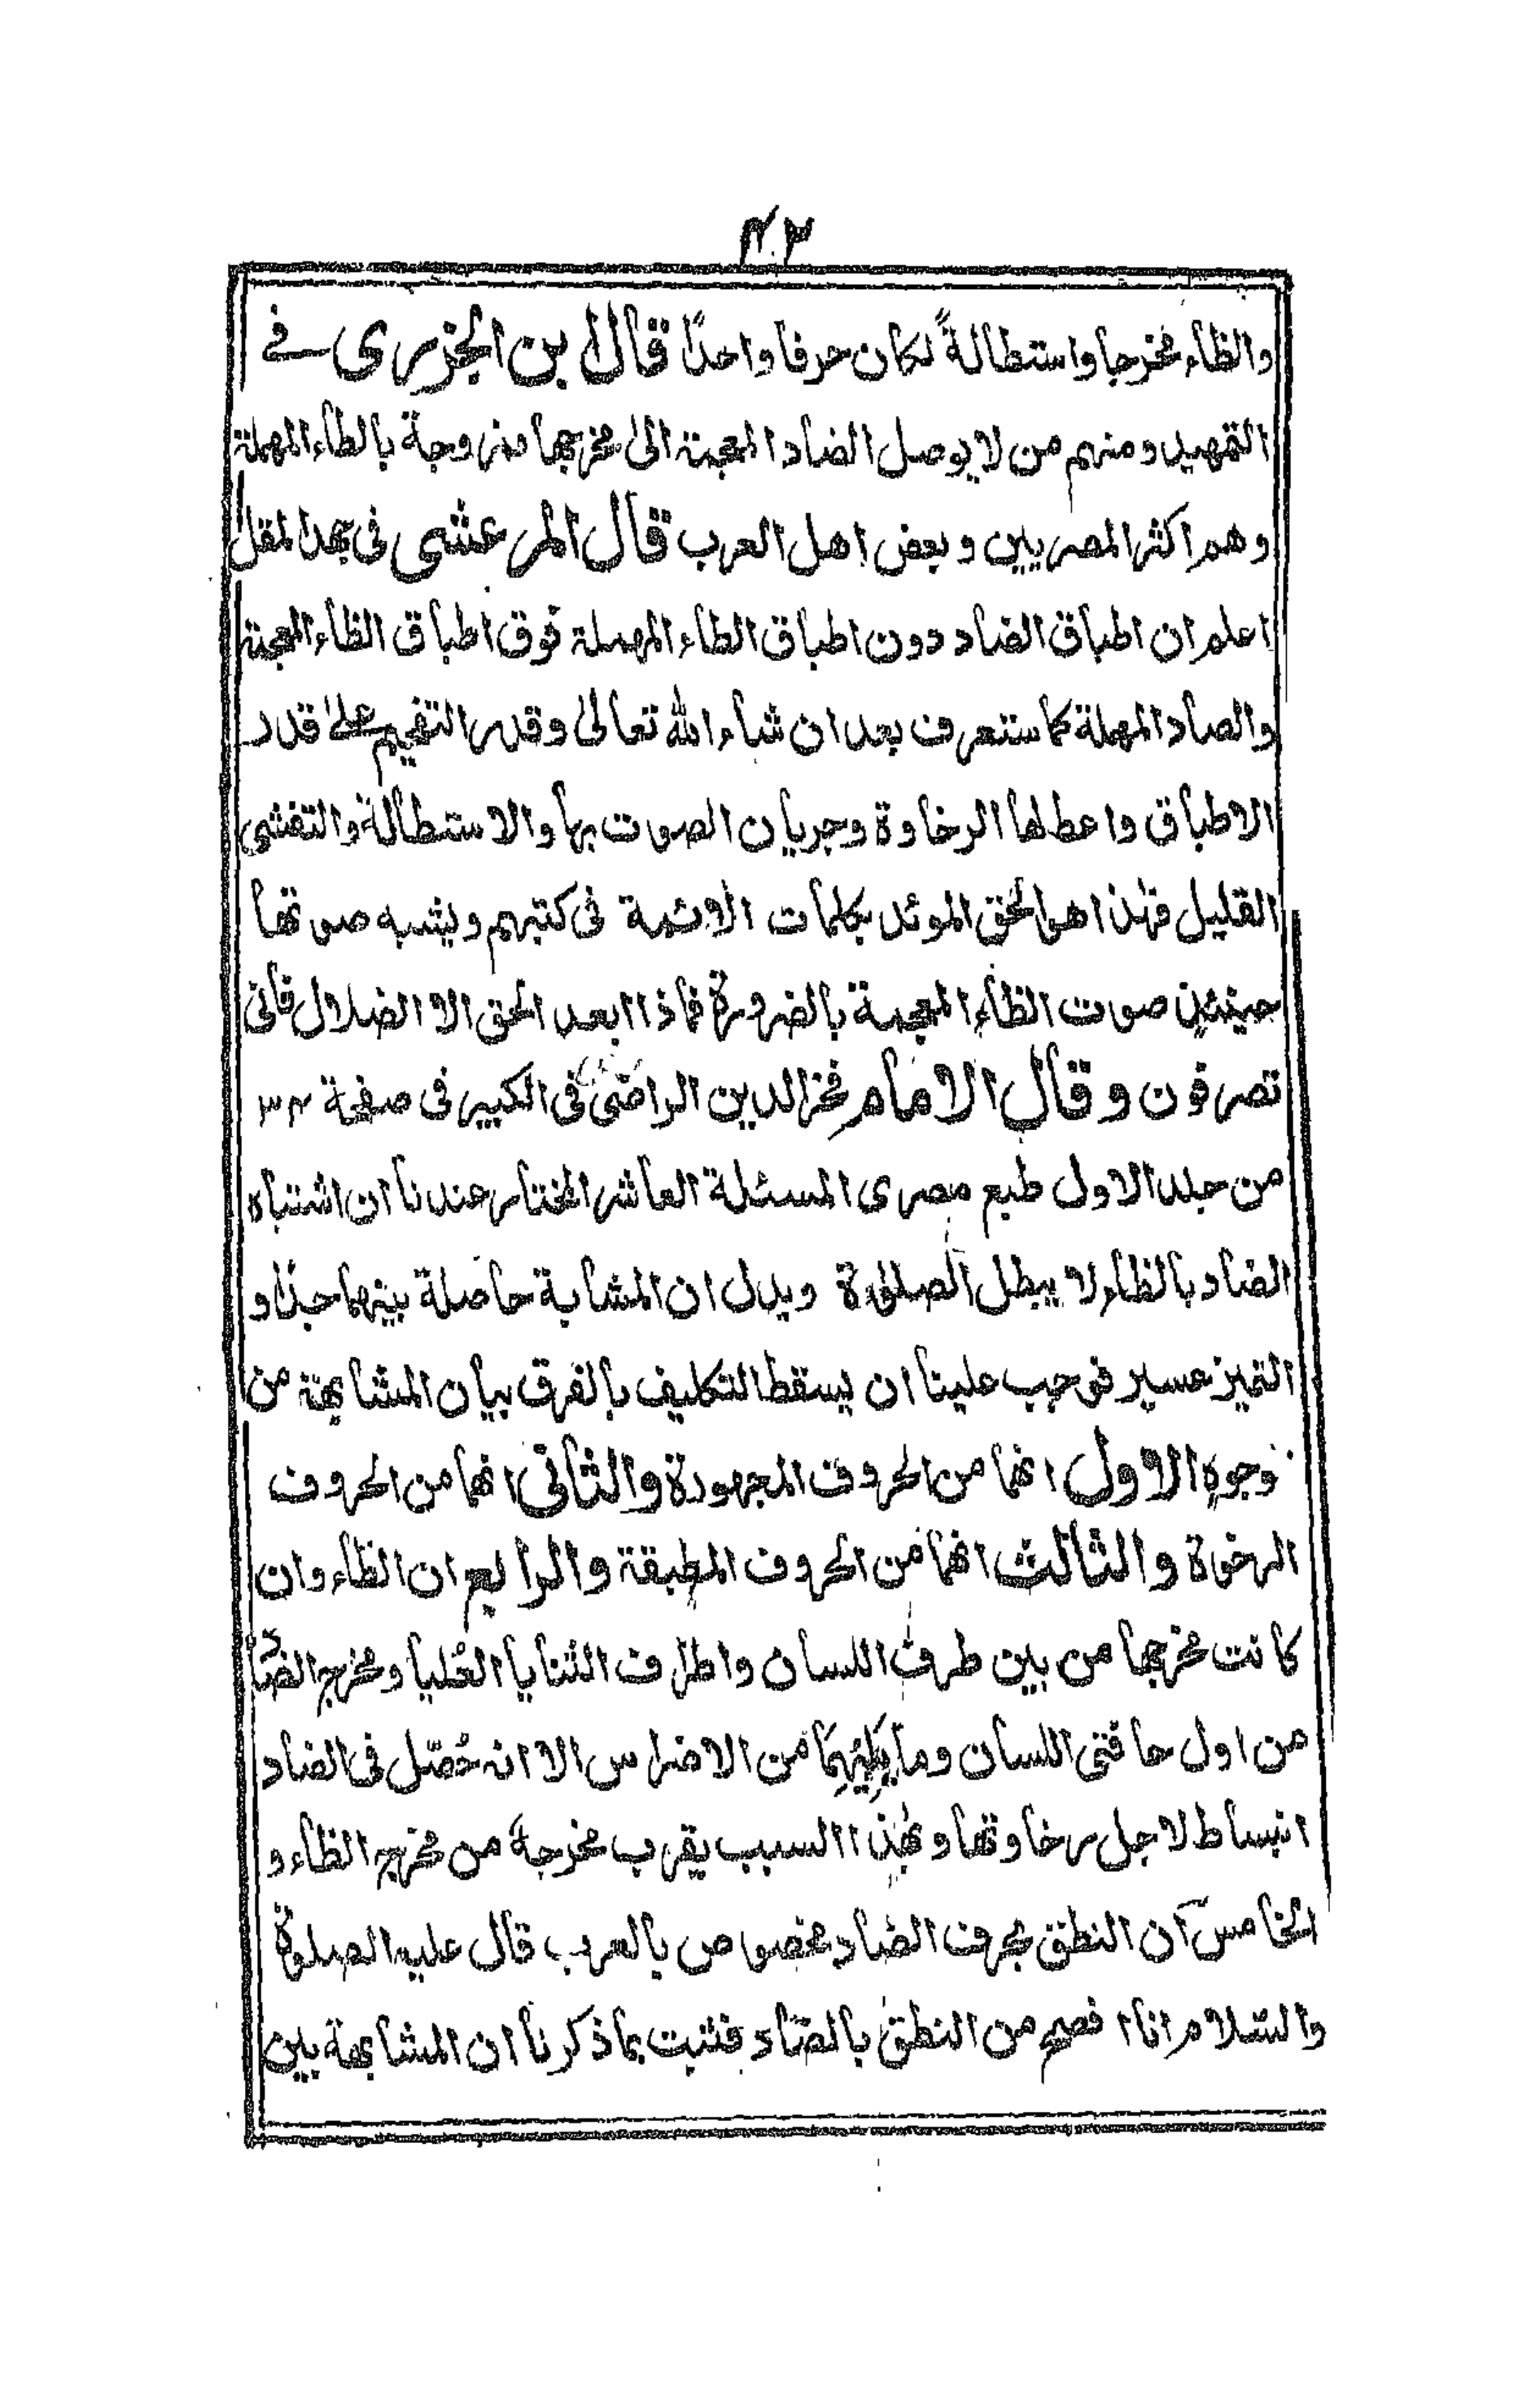 ۴۳
والظاء مخرجا واستطالةً لكان حرفا واحدًا قال ابن الجزرى فے
التمهيد ومنهم من لا يوصل الضاد المعجمة الىٰ مخرجها ممزوجة بالطاء المهملة
وهم اكثر المصريين وبعض اهل العرب قال المرعشى فى جهد المقل
اعلم ان اطباق الضاد دون اطباق الطاء المهملة فوق اطباق الظاء المعجمة
والصاد المهملة كما ستعرف بعد ان شاء الله تعالىٰ وقدر التفخيم علىٰ قدر
الاطباق واعطاها الرخاوة وجريان الصوت بها والاستطالة والتفشى
القليل فهٰذا هو الحق الموئد بكلمات الائمة فى كتبهم ويشبه صوتها
حينئذٍ صوت الظاء المعجمة بالضرورة فماذا بعد الحق الا الضلال فانى
تصرفون وقال الامام فخر الدين الرازى فى الكبير فى صفحة ۳۴
من جلد الاول طبع مصرى المسئلة العاشر المختار عندنا ان اشتباه
الضاد بالظاء لا يبطل الصلوٰة ويدل ان المشابهة حاصلة بينهما جدًا و
التميز عسير فوجب علينا ان يسقط التكليف بالفرق بيان المشابهة من
وجوهٍ الاول انهما من الحروف المجهورة والثانى انهما من الحروف
الرخوة والثالث انهما من الحروف المطبقة والرابع ان الظاء وان
كانت مخرجها من بين طرف اللسان واطراف الثنايا العُليا ومخرج الضاد
من اول حافتى اللسان وما يليهما من الاضراس الا انه حُصّل فى الضاد
انبساط لاجل رخاوتها وبهٰذا السبب يقرب مخرجهٗ من مخرج الظاء و
الخامس ان النطق بحرف الضاد مخصوص بالعرب قال عليه الصلوة
والسّلام انا افصح من النطق بالضاد فثبت بما ذكرنا ان المشابهة بين